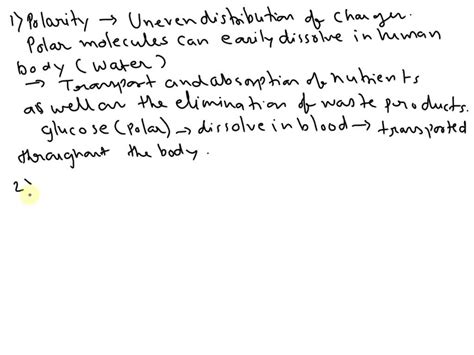 1) Polarity → Uneven distribution of charges.
Polar molecules can easily dissolve in human
body (water)
→ Transport and absorption of nutrients
as well as the elimination of waste products.
glucose (polar) → dissolve in blood → transported
throughout the body.
2)